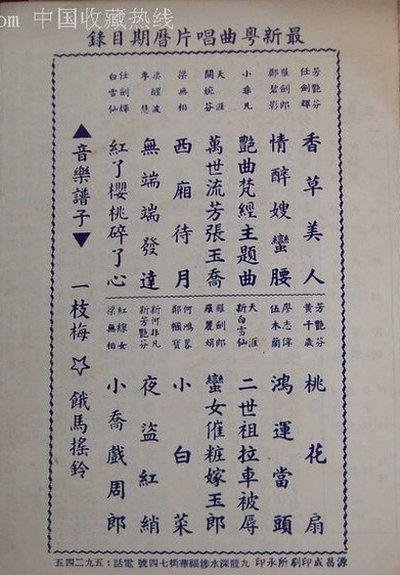 om 中国收藏热线
最新粵曲唱片曆期目錄
芳艷芬
任劍輝
香草美人
羅劍郎
鄭碧影
情醉嫂蠻腰
艷曲梵經主題曲
天涯
關婉芬
萬世流芳張玉喬
梁無相
西廂待月
梁醒波
李慧
無端端發達
任劍輝
白雪仙
紅了櫻桃碎了心
芳艷芬
黃千歲
桃花扇
廖志偉
伍木蘭
鴻運當頭
天涯
新白雪仙
二世祖拉車被辱
羅劍郎
羅麗娟
蠻女催粧嫁玉郎
鄭幗寶
小白菜
新何非凡
新芳艷芬
夜盜紅綃
紅線女
梁無相
小喬戲周郎
▲音樂譜子▼ 一枝梅 ☆ 餓馬搖鈴
源昌成印刷所承印 九龍深水埗福華街七四號 電話：五九二四五